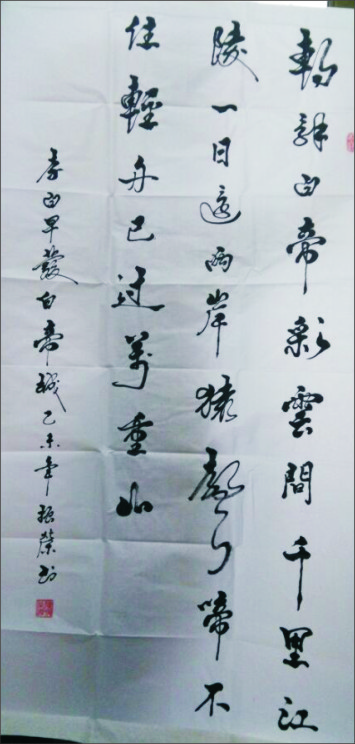 朝辞白帝彩雲間千里江
陵一日還兩岸猿聲啼不
住輕舟已过萬重山
李白早發白帝城乙未年振榮书